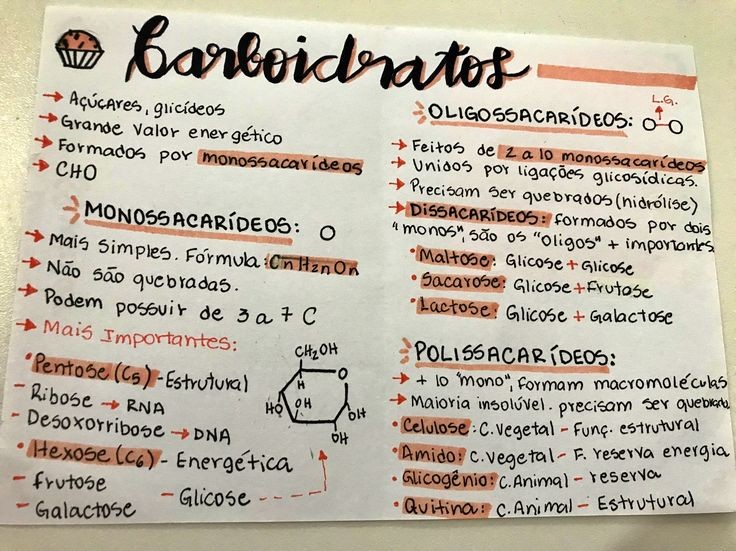 Carboidratos
→ Açúcares, glicídeos
→ Grande valor energético
→ Formados por monossacarídeos
→ CHO
MONOSSACARÍDEOS:
→ Mais simples. Fórmula: CnH2nOn
→ Não são quebradas.
→ Podem possuir de 3 a 7 C
→ Mais Importantes:
• Pentose (C5) - Estrutural
- Ribose → RNA
- Desoxorribose → DNA
• Hexose (C6) - Energética
- frutose
- Galactose
- Glicose
CH2OH
O
H
HO
OH
OH
OH
L.G.
OLIGOSSACARÍDEOS:
→ Feitos de 2 a 10 monossacarídeos
→ Unidos por ligações glicosídicas.
→ Precisam ser quebrados (hidrólise)
→ DISSACARÍDEOS: formados por dois
"monos", são os "oligos" + importantes
• Maltose: Glicose + Glicose
• Sacarose: Glicose + Frutose
• Lactose: Glicose + Galactose
POLISSACARÍDEOS:
→ + 10 "mono", Formam macromoléculas
→ Maioria insolúvel. precisam ser quebrada
• Celulose: C.Vegetal - Funç. estrutural
• Amido: C.Vegetal - F. reserva energia
• Glicogênio: C.Animal - reserva
• Quitina: C.Animal - Estrutural